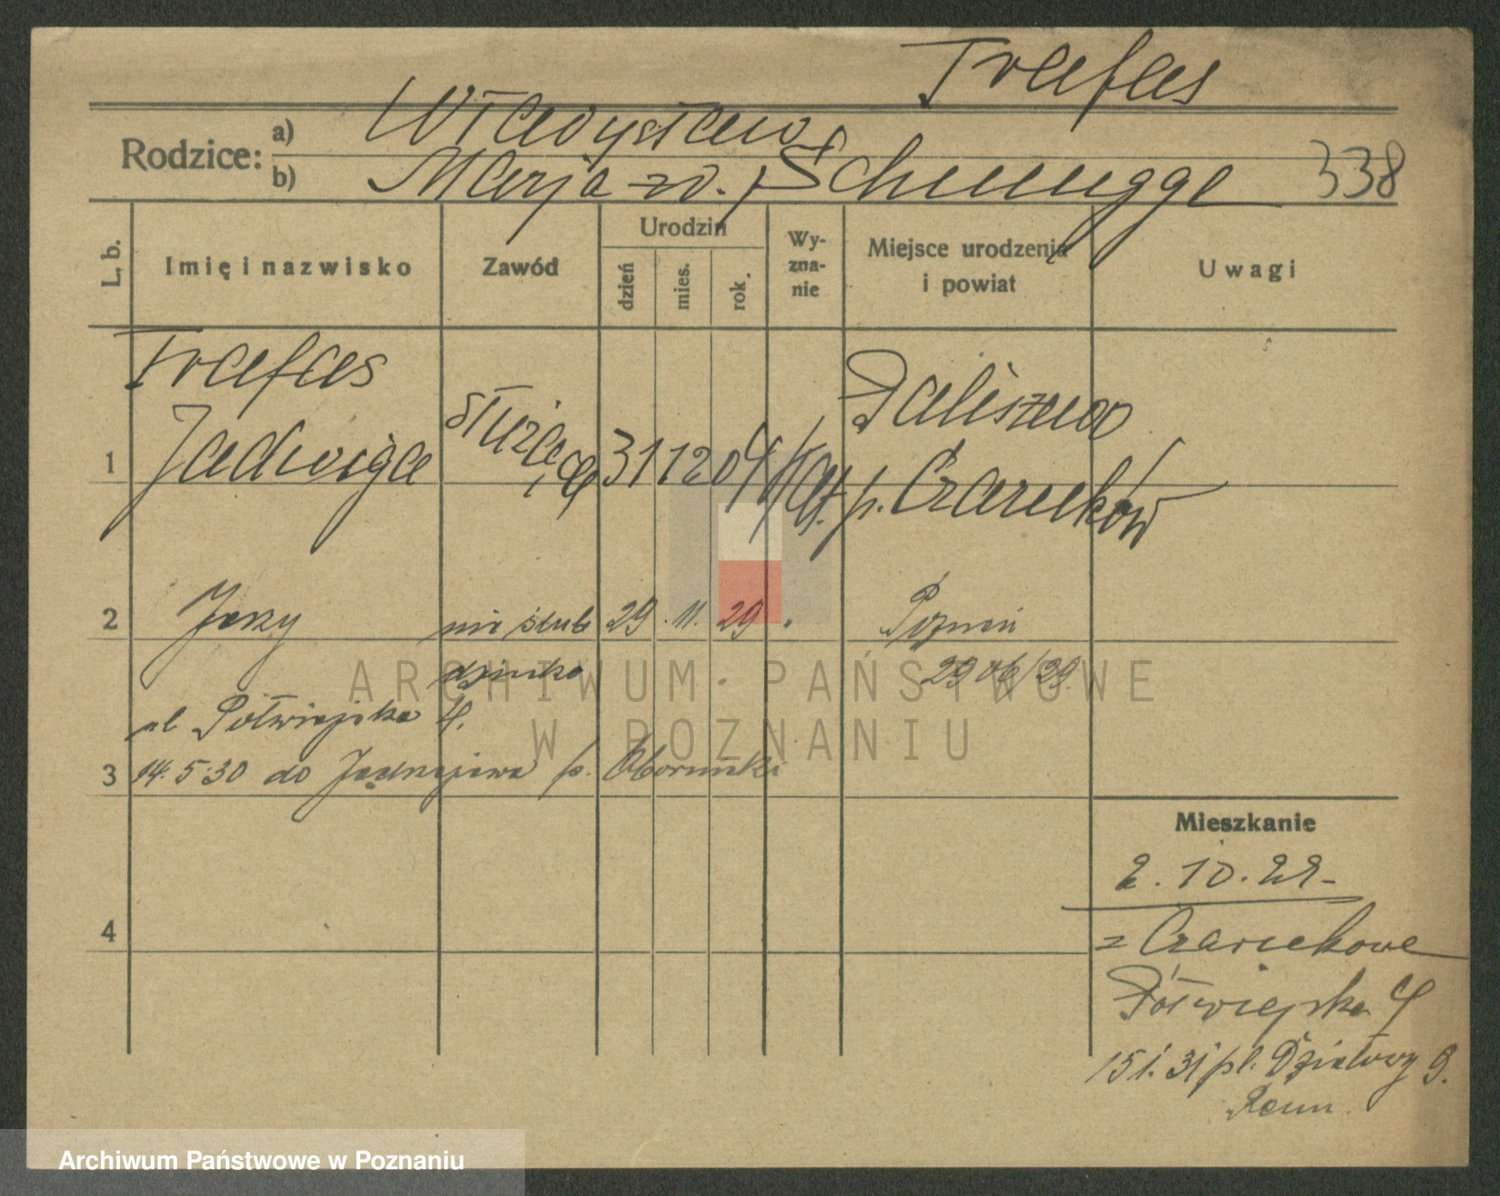 Trafas
Rodzice:
a) Władysław
b) Marja zd. Schmugge
338
L. b.
Imię i nazwisko
Zawód
Urodzin
dzień
mies.
rok.
Wy-
zna-
nie
Miejsce urodzenia
i powiat
Uwagi
Trafas
1 Jadwiga służąca 31 12 04 kat.
p. Czarnków
2 Jerzy nieślub 29. 11. 29 " Poznań
dziecko
ul. Półwiejska 4.
3 14.5.30 do p. Obornicki
4
Mieszkanie
2.10.29-
z Czarnkowa
Półwiejska 4
15 1. 31 pl. Działowy 9.
ARCHIWUM PAŃSTWOWE
W POZNANIU
Archiwum Państwowe w Poznaniu